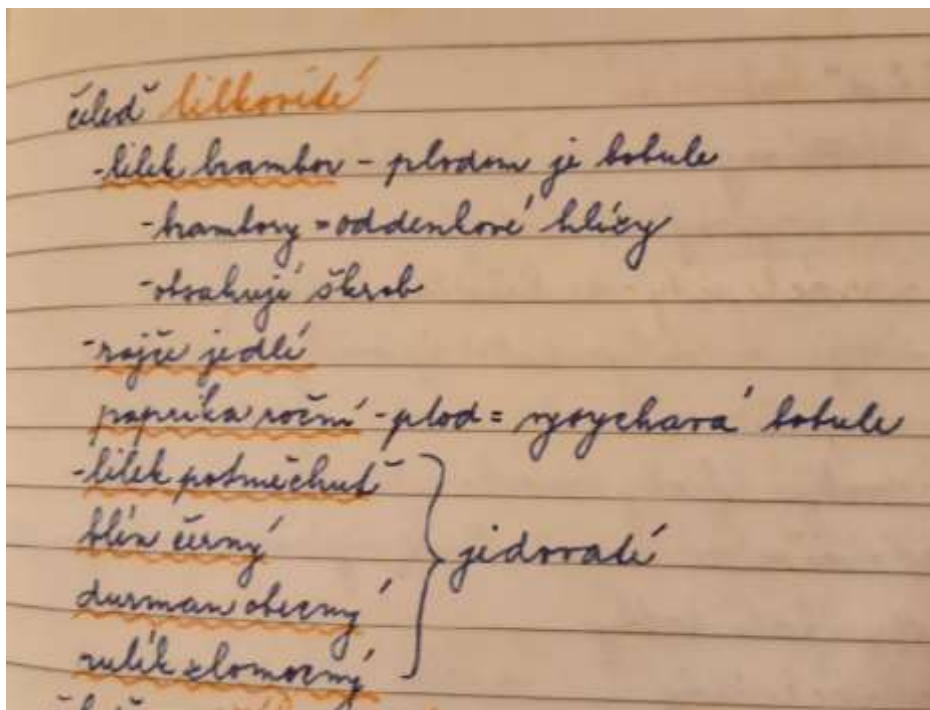 čeleď lilkovité
-lilek brambor - plodom je bobule
-brambory = oddenkové hlízy
-obsahují škrob
-rajče jedlé
paprika roční - plod = vysychavá bobule
-lilek potměchuť
blín černý
durman obecný
rulík zlomocný
jedovaté